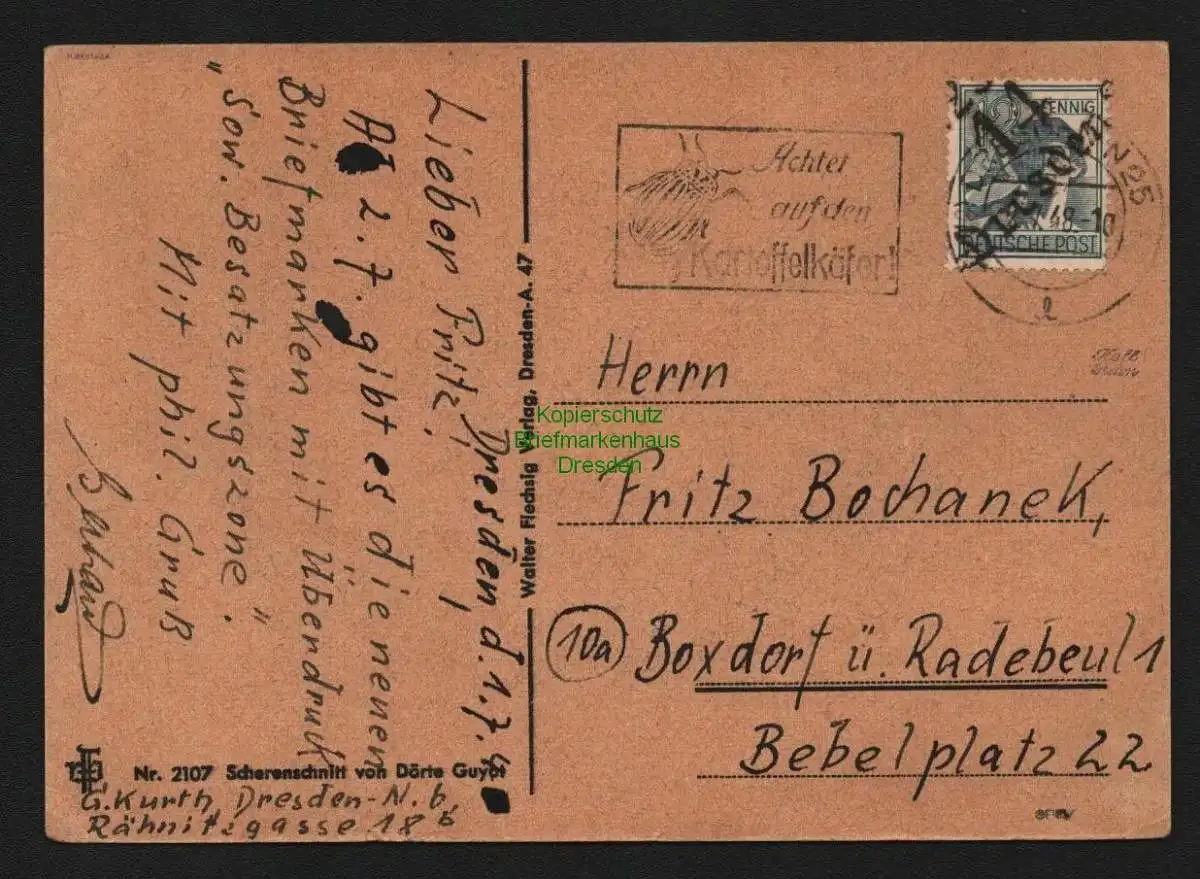 Dresden, d. 1.7.4
Lieber Fritz!
Ab 2.7. gibt es die neuen
Briefmarken mit Überdruck
„Sow. Besatzungszone".
Mit phil. Gruß
Nr. 2107 Scherenschnitt von Dörte Guyot
G. Kurth, Dresden-N. 6,
Rähnitzgasse 18 b
Walter Flechsig Verlag, Dresden-A. 47
Achtet
auf den
Kartoffelkäfer!
PFENNIG
14
Dresden
N25
48-10
DEUTSCHE POST
l
Herrn
Kopierschutz
Briefmarkenhaus
Dresden
Fritz Bochanek,
10a Boxdorf ü. Radebeul 1
Bebelplatz 22